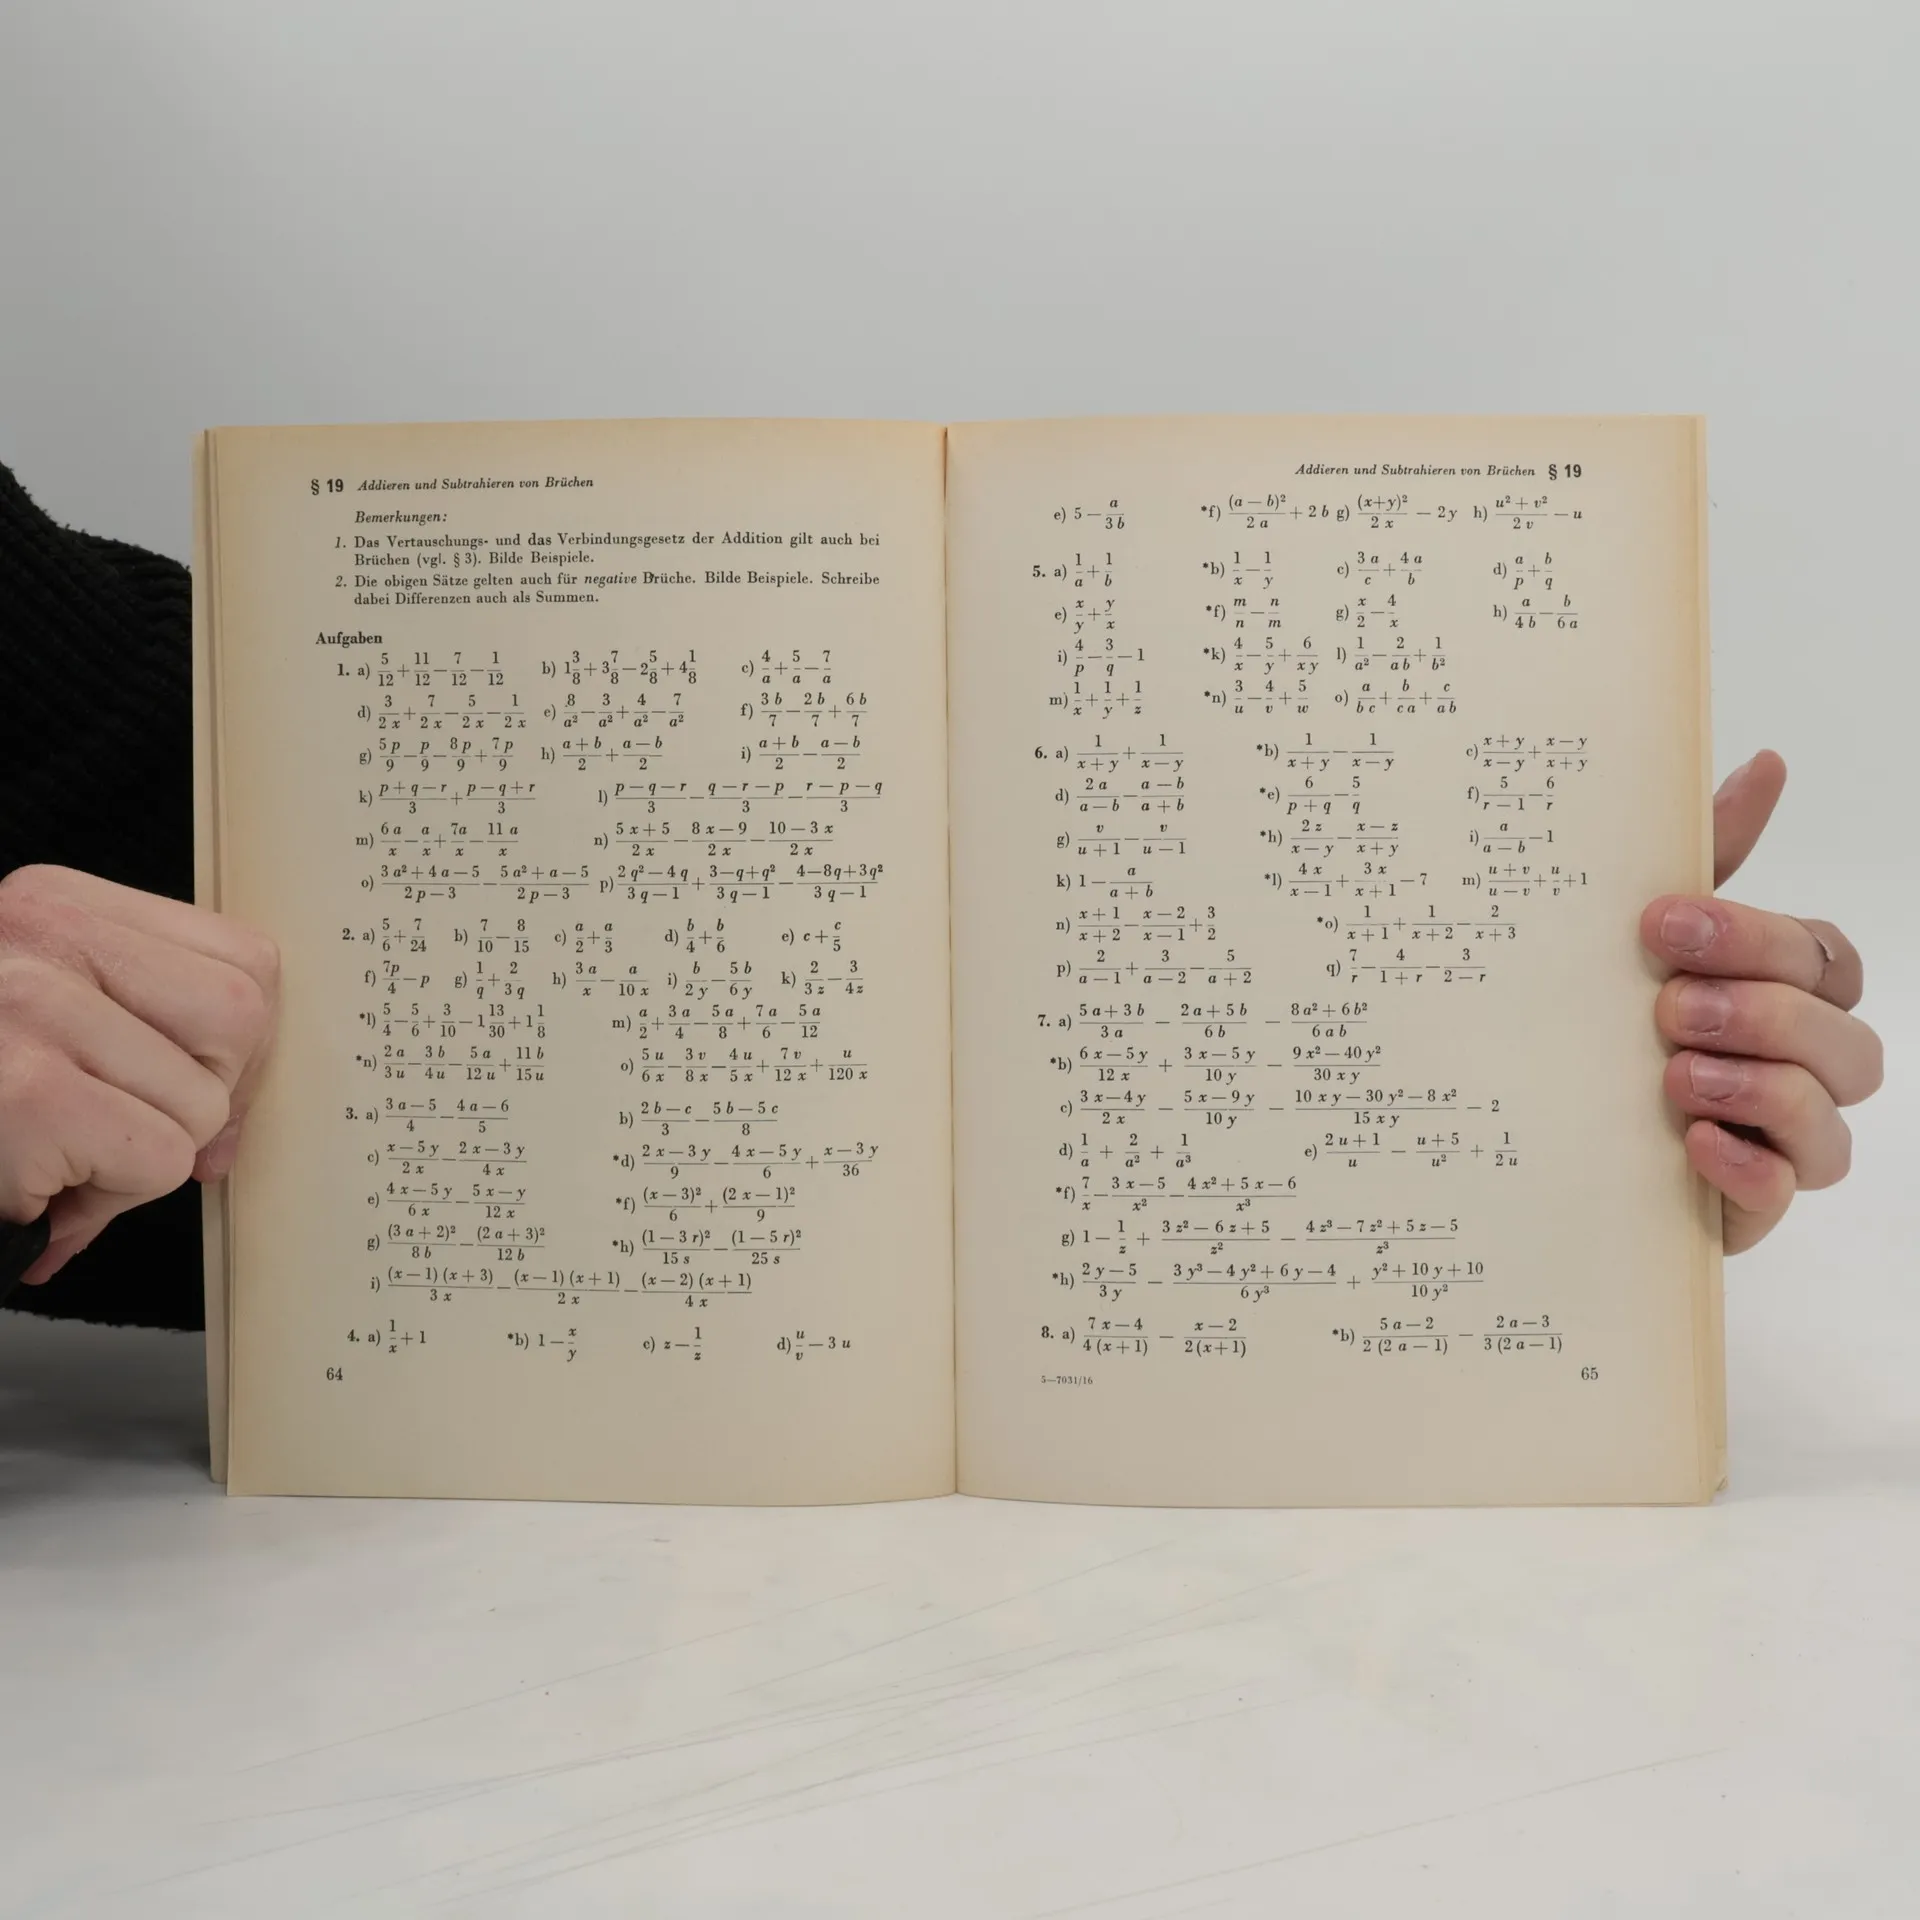 § 19 Addieren und Subtrahieren von Brüchen
Bemerkungen:
1. Das Vertauschungs- und das Verbindungsgesetz der Addition gilt auch bei
Brüchen (vgl. § 3). Bilde Beispiele.
2. Die obigen Sätze gelten auch für negative Brüche. Bilde Beispiele. Schreibe
dabei Differenzen auch als Summen.
Aufgaben
1. a) 5/12 + 11/12 − 7/12 − 1/12 b) 1 3/8 + 3 7/8 − 2 5/8 + 4 1/8 c) 4/a + 5/a − 7/a
d) 3/(2x) + 7/(2x) − 5/(2x) − 1/(2x) e) 8/a² − 3/a² + 4/a² − 7/a² f) 3b/7 − 2b/7 + 6b/7
g) 5p/9 − p/9 − 8p/9 + 7p/9 h) (a+b)/2 + (a−b)/2 i) (a+b)/2 − (a−b)/2
k) (p+q−r)/3 + (p−q+r)/3 l) (p−q−r)/3 − (q−r−p)/3 − (r−p−q)/3
m) 6a/x − a/x + 7a/x − 11a/x n) (5x+5)/(2x) − (8x−9)/(2x) − (10−3x)/(2x)
o) (3a²+4a−5)/(2p−3) − (5a²+a−5)/(2p−3) p) (2q²−4q)/(3q−1) + (3−q+q²)/(3q−1) − (4−8q+3q²)/(3q−1)
2. a) 5/6 + 7/24 b) 7/10 − 8/15 c) a/2 + a/3 d) b/4 + b/6 e) c + c/5
f) 7p/4 − p g) 1/q + 2/(3q) h) 3a/x − a/(10x) i) b/(2y) − 5b/(6y) k) 2/(3z) − 3/(4z)
*l) 5/4 − 5/6 + 3/10 − 1 13/30 + 1 1/8 m) a/2 + 3a/4 − 5a/8 + 7a/6 − 5a/12
*n) 2a/(3u) − 3b/(4u) − 5a/(12u) + 11b/(15u) o) 5u/(6x) − 3v/(8x) − 4u/(5x) + 7v/(12x) + u/(120x)
3. a) (3a−5)/4 − (4a−6)/5 b) (2b−c)/3 − (5b−5c)/8
c) (x−5y)/(2x) − (2x−3y)/(4x) *d) (2x−3y)/9 − (4x−5y)/6 + (x−3y)/36
e) (4x−5y)/(6x) − (5x−y)/(12x) *f) (x−3)²/6 + (2x−1)²/9
g) (3a+2)²/(8b) − (2a+3)²/(12b) *h) (1−3r)²/(15s) − (1−5r)²/(25s)
i) (x−1)(x+3)/(3x) − (x−1)(x+1)/(2x) − (x−2)(x+1)/(4x)
4. a) 1/x + 1 *b) 1 − x/y c) z − 1/z d) u/v − 3u
64
Addieren und Subtrahieren von Brüchen § 19
e) 5 − a/(3b) *f) (a−b)²/(2a) + 2b g) (x+y)²/(2x) − 2y h) (u²+v²)/(2v) − u
5. a) 1/a + 1/b *b) 1/x − 1/y c) 3a/c + 4a/b d) a/p + b/q
e) x/y + y/x *f) m/n − n/m g) x/2 − 4/x h) a/(4b) − b/(6a)
i) 4/p − 3/q − 1 *k) 4/x − 5/y + 6/(xy) l) 1/a² − 2/(ab) + 1/b²
m) 1/x + 1/y + 1/z *n) 3/u − 4/v + 5/w o) a/(bc) + b/(ca) + c/(ab)
6. a) 1/(x+y) + 1/(x−y) *b) 1/(x+y) − 1/(x−y) c) (x+y)/(x−y) + (x−y)/(x+y)
d) 2a/(a−b) − (a−b)/(a+b) *e) 6/(p+q) − 5/q f) 5/(r−1) − 6/r
g) v/(u+1) − v/(u−1) *h) 2z/(x−y) − (x−z)/(x+y) i) a/(a−b) − 1
k) 1 − a/(a+b) *l) 4x/(x−1) + 3x/(x+1) − 7 m) (u+v)/(u−v) + u/v + 1
n) (x+1)/(x+2) − (x−2)/(x−1) + 3/2 *o) 1/(x+1) + 1/(x+2) − 2/(x+3)
p) 2/(a−1) + 3/(a−2) − 5/(a+2) q) 7/r − 4/(1+r) − 3/(2−r)
7. a) (5a+3b)/(3a) − (2a+5b)/(6b) − (8a²+6b²)/(6ab)
*b) (6x−5y)/(12x) + (3x−5y)/(10y) − (9x²−40y²)/(30xy)
c) (3x−4y)/(2x) − (5x−9y)/(10y) − (10xy−30y²−8x²)/(15xy) − 2
d) 1/a + 2/a² + 1/a³ e) (2u+1)/u − (u+5)/u² + 1/(2u)
*f) 7/x − (3x−5)/x² − (4x²+5x−6)/x³
g) 1 − 1/z + (3z²−6z+5)/z² − (4z³−7z²+5z−5)/z³
*h) (2y−5)/(3y) − (3y³−4y²+6y−4)/(6y³) + (y²+10y+10)/(10y²)
8. a) (7x−4)/(4(x+1)) − (x−2)/(2(x+1)) *b) (5a−2)/(2(2a−1)) − (2a−3)/(3(2a−1))
5—7031/16
65